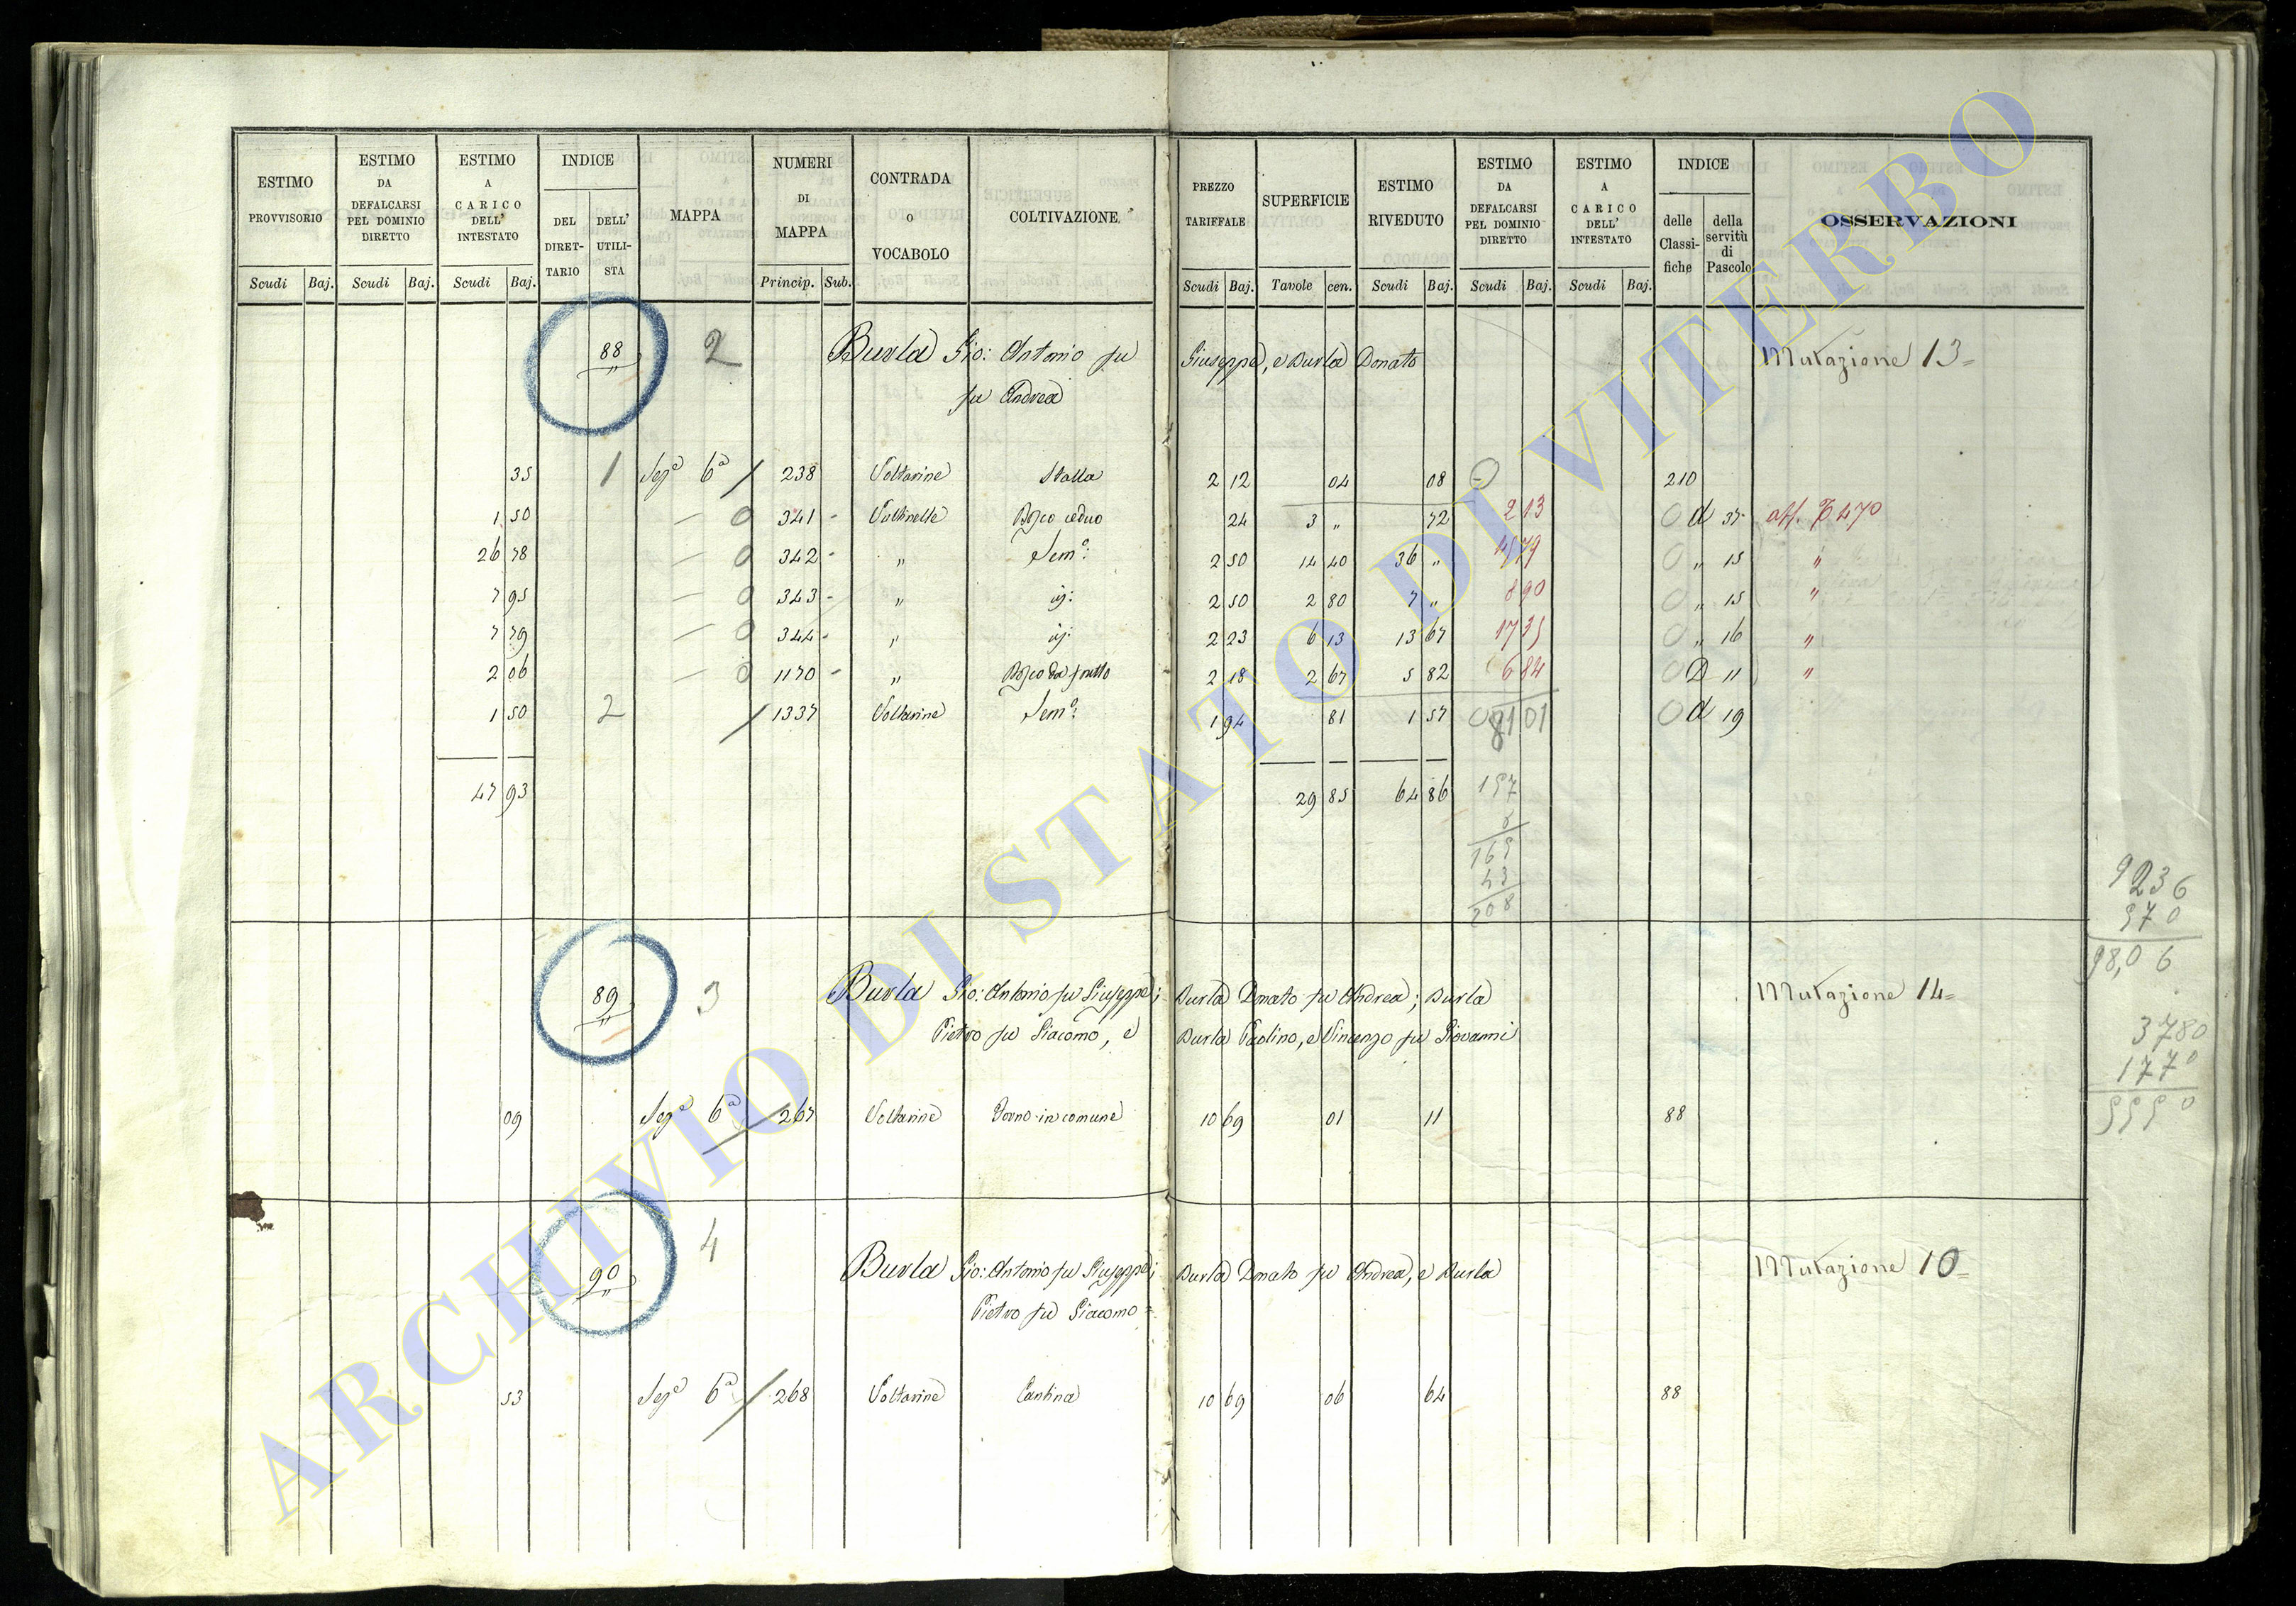 ESTIMO PROVVISORIO | ESTIMO DA DEFALCARSI PEL DOMINIO DIRETTO | ESTIMO A CARICO DELL' INTESTATO | INDICE DEL DIRET-TARIO | DELL' UTILI-STA | MAPPA | NUMERI DI MAPPA | CONTRADA O VOCABOLO | COLTIVAZIONE | PREZZO TARIFFALE | SUPERFICIE | ESTIMO RIVEDUTO | ESTIMO DA DEFALCARSI PEL DOMINIO DIRETTO | ESTIMO A CARICO DELL' INTESTATO | INDICE delle Classi-fiche | della servitù di Pascolo | OSSERVAZIONI
Scudi Baj. Scudi Baj. Scudi Baj. Princip. Sub. Scudi Baj. Tavole cen. Scudi Baj. Scudi Baj. Scudi Baj.
88 2 Burla Gio: Antonio fu Giuseppe, e Burla Donato Mutazione 13
fu Andrea
35 1 Sez.e 6a 238 Voltarine Stalla 2 12 04 08 0 210
1 50 0 341 Bosco ceduo 24 3 „ 72 2 13 0 d 37 aff. 470
26 78 0 342 „ Sem.o: 2 50 14 40 36 „ 0 „ 15 „
7 95 0 343 „ 2 50 2 80 7 „ 8 90 0 „ 15 „
7 79 0 344 „ 2 23 6 13 13 67 17 35 0 „ 16 „
2 06 0 1170 „ Bosco da frutto 2 18 2 67 5 82 6 84 0 D 11 „
1 50 2 1337 Voltarine Sem.o: 1 94 81 1 57 81 01 0 d 19
47 93 29 85 64 86 157
8
165
43
208
9236
570
98,06
89 3 Burla Gio: Antonio fu Giuseppe; Burla Donato fu Andrea; Burla Mutazione 14
Pietro fu Giacomo, e Burla Paolino, e Vincenzo fu Giovanni
3780
1770
5550
09 Sez.e 6a 267 Voltarine Forno in comune 10 69 01 11 88
90 4 Burla Gio: Antonio fu Giuseppe; Burla Donato fu Andrea, e Burla Mutazione 10
Pietro fu Giacomo
53 Sez.e 6a 268 Voltarine Cantina 10 69 06 64 88
ARCHIVIO DI STATO DI VITERBO